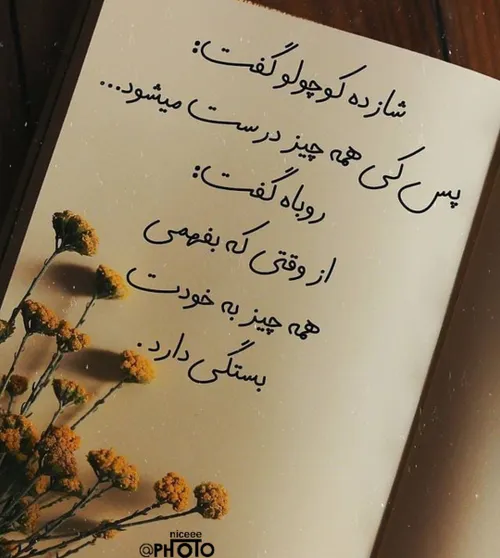 شازده کوچولو گفت:
پس کی همه چیز درست میشود...
روباه گفت:
از وقتی که بفهمی
همه چیز به خودت
بستگی دارد.
niceee
@PHOTO